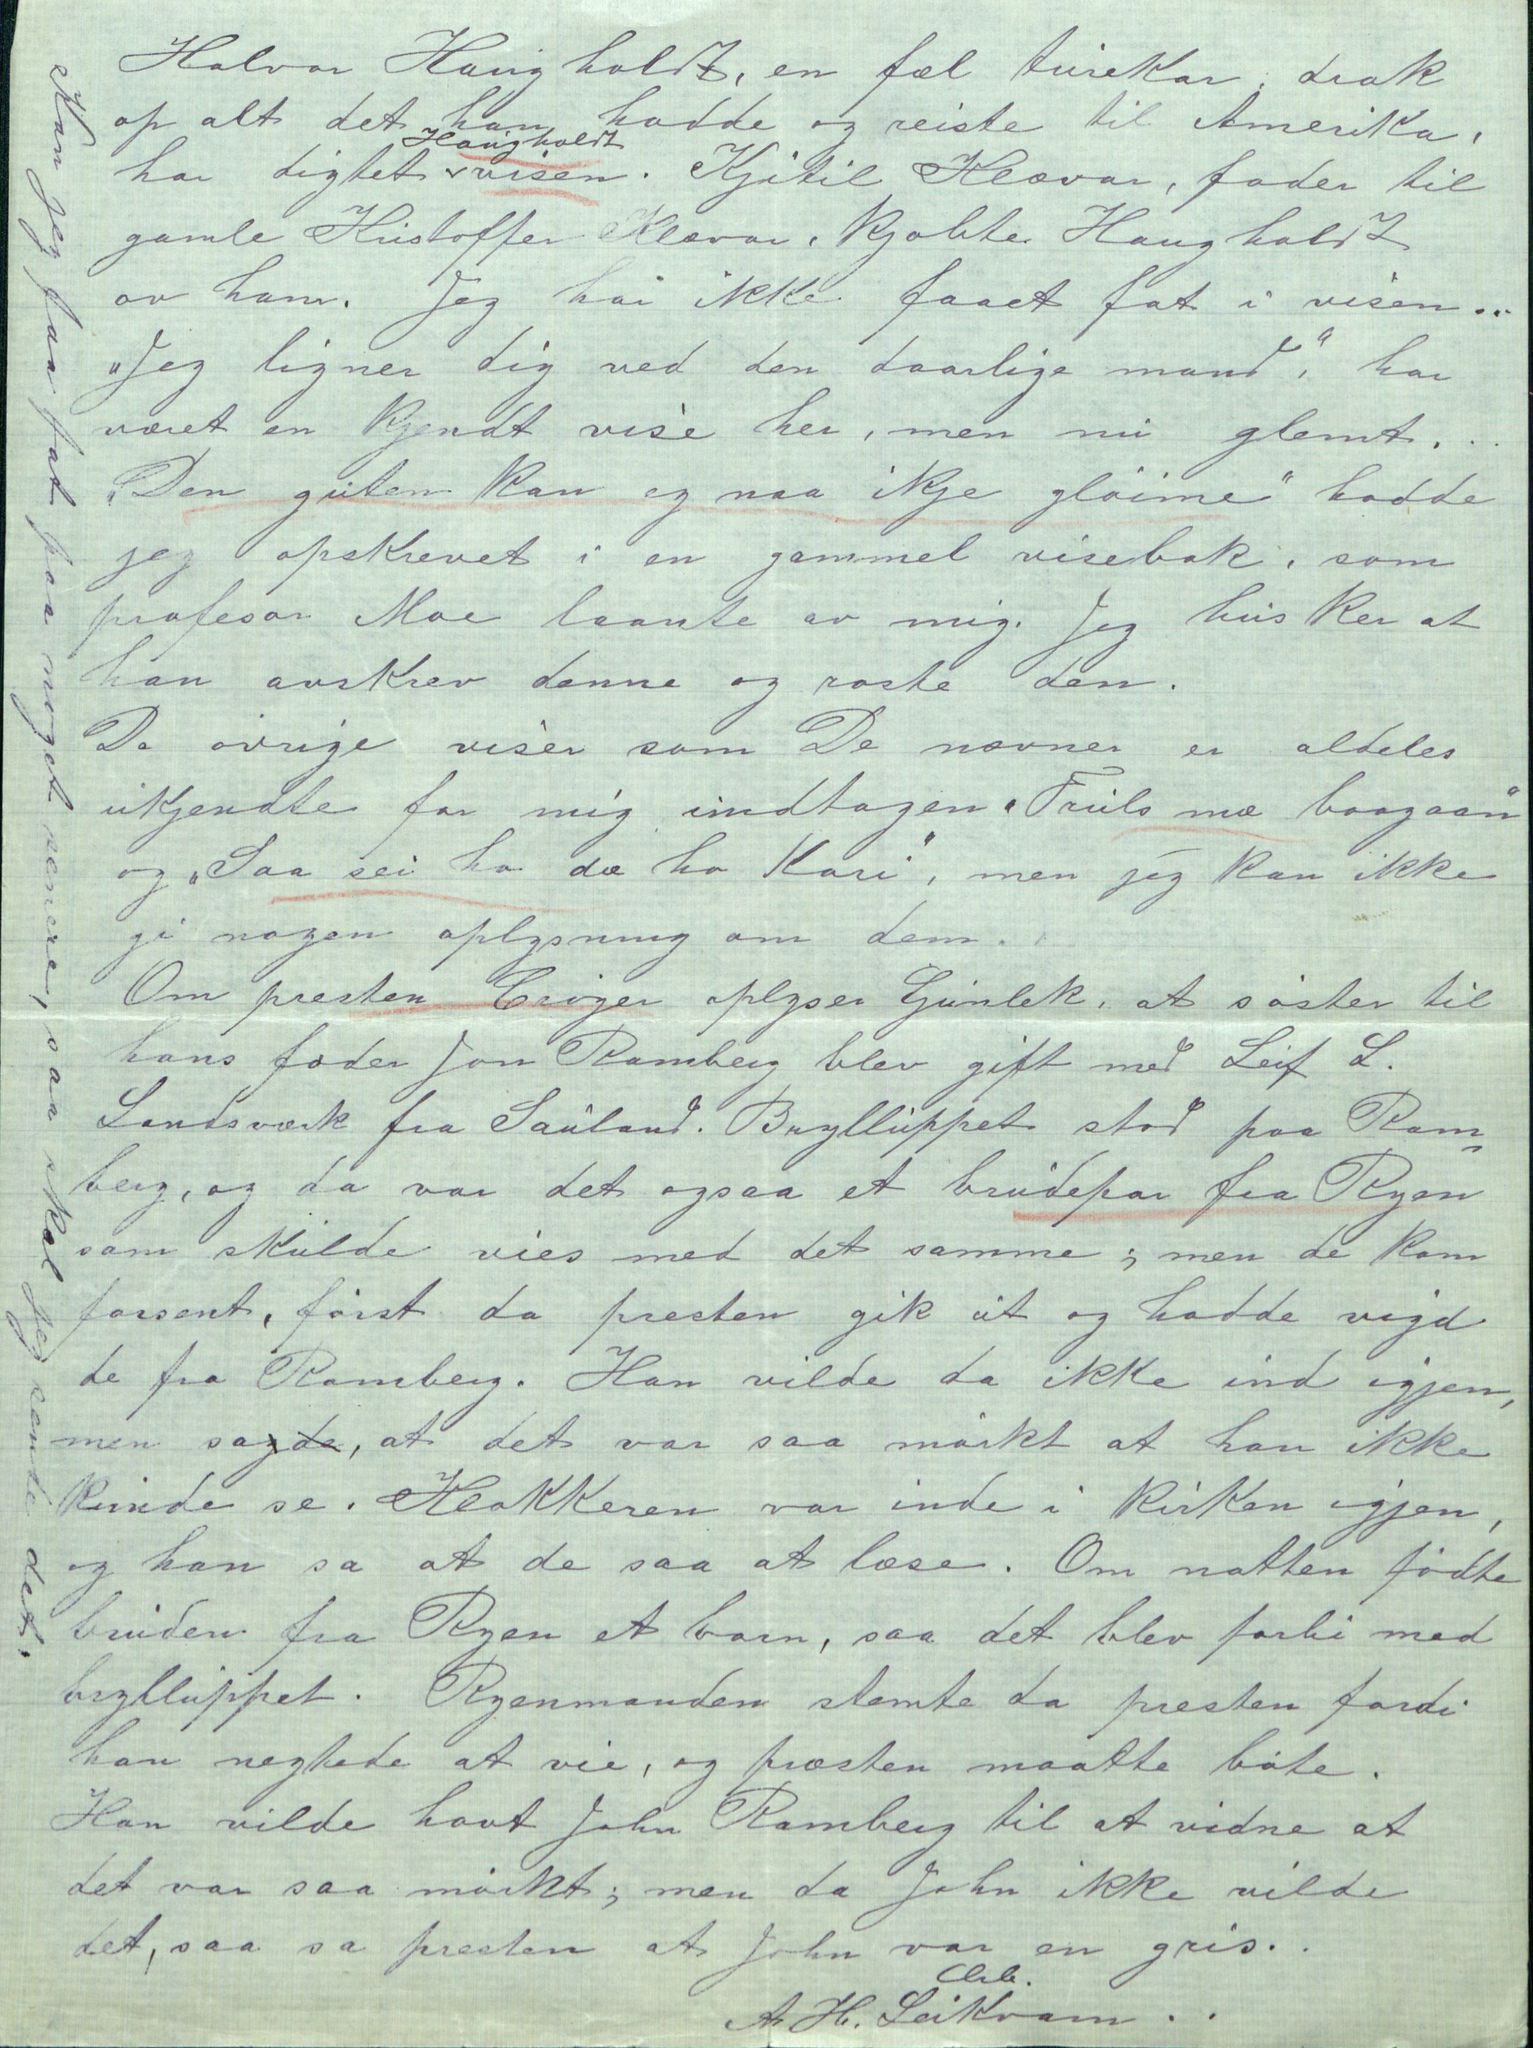 Halvor Haugholdt, en fæl turekar, drak
op alt det han hadde og reiste til Amerika,
har digtet Haugholdtvisen. Kjætil Klævar, fader til
gamle Kristoffer Klævar, kjøbte Haugholdt
av ham. Jeg har ikke faaet fat i visen..
„Jeg ligner dig ved den daarlige mand“, har
været en kjendt vise her, men nu glemt..
„Den guten kan eg naa ikje gløime“ hadde
jeg opskrevet i en gammel visebok, som
profesor Moe laante av mig. Jeg husker at
han avskrev denne og roste den.
De øvrige viser som De nævner er aldeles
ukjendte for mig undtagen „Truls mæ boogaan“
og „Saa sei ho dæ ho Kari“, men jeg kan ikke
gi nogen oplysning om dem.
Om presten Crøger oplyser Gunlek, at søster til
hans fader Jon Ramberg blev gift med Leif L.
Landsværk fra Sauland. Brylluppet stod paa Ram=
berg, og da var det ogsaa et brudepar fra Ryen
som skulde vies med det samme; men de kom
forsent, først da presten gik ut og hadde vigd
de fra Ramberg. Han vilde da ikke ind igjen,
men sagde, at det var saa mørkt at han ikke
kunde se. Klokkeren var inde i kirken igjen,
og han sa at de saa at læse. Om natten fødte
bruden fra Ryen et barn, saa det blev forbi med
bryllüppet. Ryenmanden stemte da presten fordi
han negtede at vie, og præsten maatte bøte.
Han vilde havt John Ramberg til at vidne at
det var saa mørkt; men da John ikke vilde
det, saa sa presten at John var en gris..
Arb.
A. H. Leikvam..
Kan jeg faa fat paa noget senere, saa skal jeg sende det.